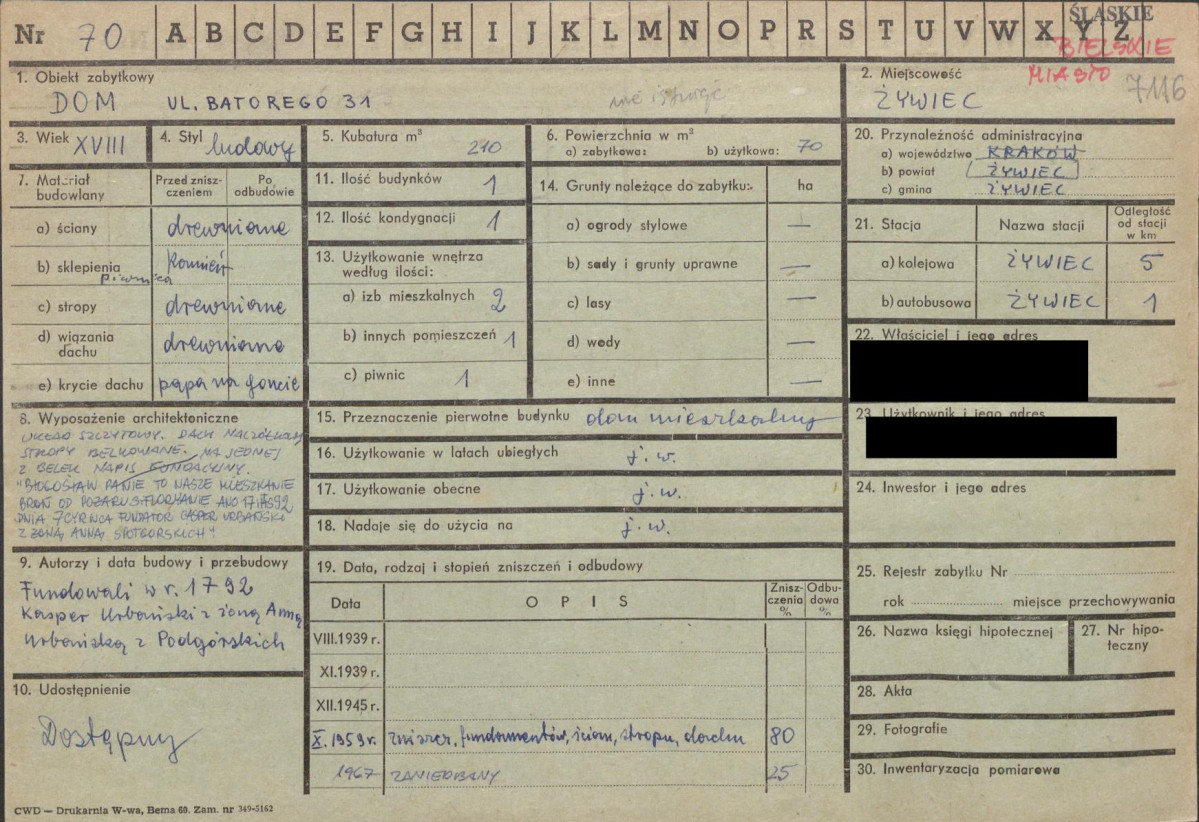 Nr 70 A B C D E F G H I J K L M N O P R S T U V W X Y Z
ŚLĄSKIE
BIELSKIE
MIASTO 7116
1. Obiekt zabytkowy
DOM UL. BATOREGO 31
nie istnieje
2. Miejscowość
ŻYWIEC
3. Wiek XVIII
4. Styl ludowy
5. Kubatura m³
210
6. Powierzchnia w m²
a) zabytkowa: b) użytkowa: 70
20. Przynależność administracyjna
a) województwo KRAKÓW
b) powiat ŻYWIEC
c) gmina ŻYWIEC
7. Materiał budowlany
Przed zniszczeniem
Po odbudowie
a) ściany drewniane
b) sklepienia kamień
piwnica
c) stropy drewniane
d) wiązania dachu drewniane
e) krycie dachu papa na goncie
11. Ilość budynków 1
12. Ilość kondygnacji 1
13. Użytkowanie wnętrza
według ilości:
a) izb mieszkalnych 2
b) innych pomieszczeń 1
c) piwnic 1
14. Grunty należące do zabytku: ha
a) ogrody stylowe —
b) sady i grunty uprawne —
c) lasy —
d) wody —
e) inne —
21. Stacja Nazwa stacji Odległość od stacji w km
a) kolejowa ŻYWIEC 5
b) autobusowa ŻYWIEC 1
22. Właściciel i jego adres
23. Użytkownik i jego adres
8. Wyposażenie architektoniczne
UKŁAD SZCZYTOWY. DACH NACZÓŁKOWY
STROPY BELKOWANE. NA JEDNEJ
Z BELEK NAPIS FUNDACYJNY.
"BŁOGOSŁAW PANIE TO NASZE MIESZKANIE
BROŃ OD POŻARU ST. FLORYANIE ANO
DNIA 7 CYRWCA FUNDATOR CASPER URBAŃSKI
Z ŻONĄ ANNĄ
15. Przeznaczenie pierwotne budynku dom mieszkalny
16. Użytkowanie w latach ubiegłych j. w.
17. Użytkowanie obecne j. w.
18. Nadaje się do użycia na j. w.
24. Inwestor i jego adres
9. Autorzy i data budowy i przebudowy
Fundowali w r. 1792
Kasper Urbański z żoną Anną
Urbańską z Podgórskich
19. Data, rodzaj i stopień zniszczeń i odbudowy
Data OPIS Zniszczenia % Odbudowa %
VIII.1939 r.
XI.1939 r.
XII.1945 r.
X. 1959 r. zniszcz. fundamentów, ścian, stropu, dachu 80
1967 ZANIEDBANY 25
25. Rejestr zabytku Nr
rok miejsce przechowywania
26. Nazwa księgi hipotecznej
27. Nr hipoteczny
28. Akta
29. Fotografie
30. Inwentaryzacja pomiarowa
10. Udostępnienie
Dostępny
CWD — Drukarnia W-wa, Bema 60. Zam. nr 349-5162